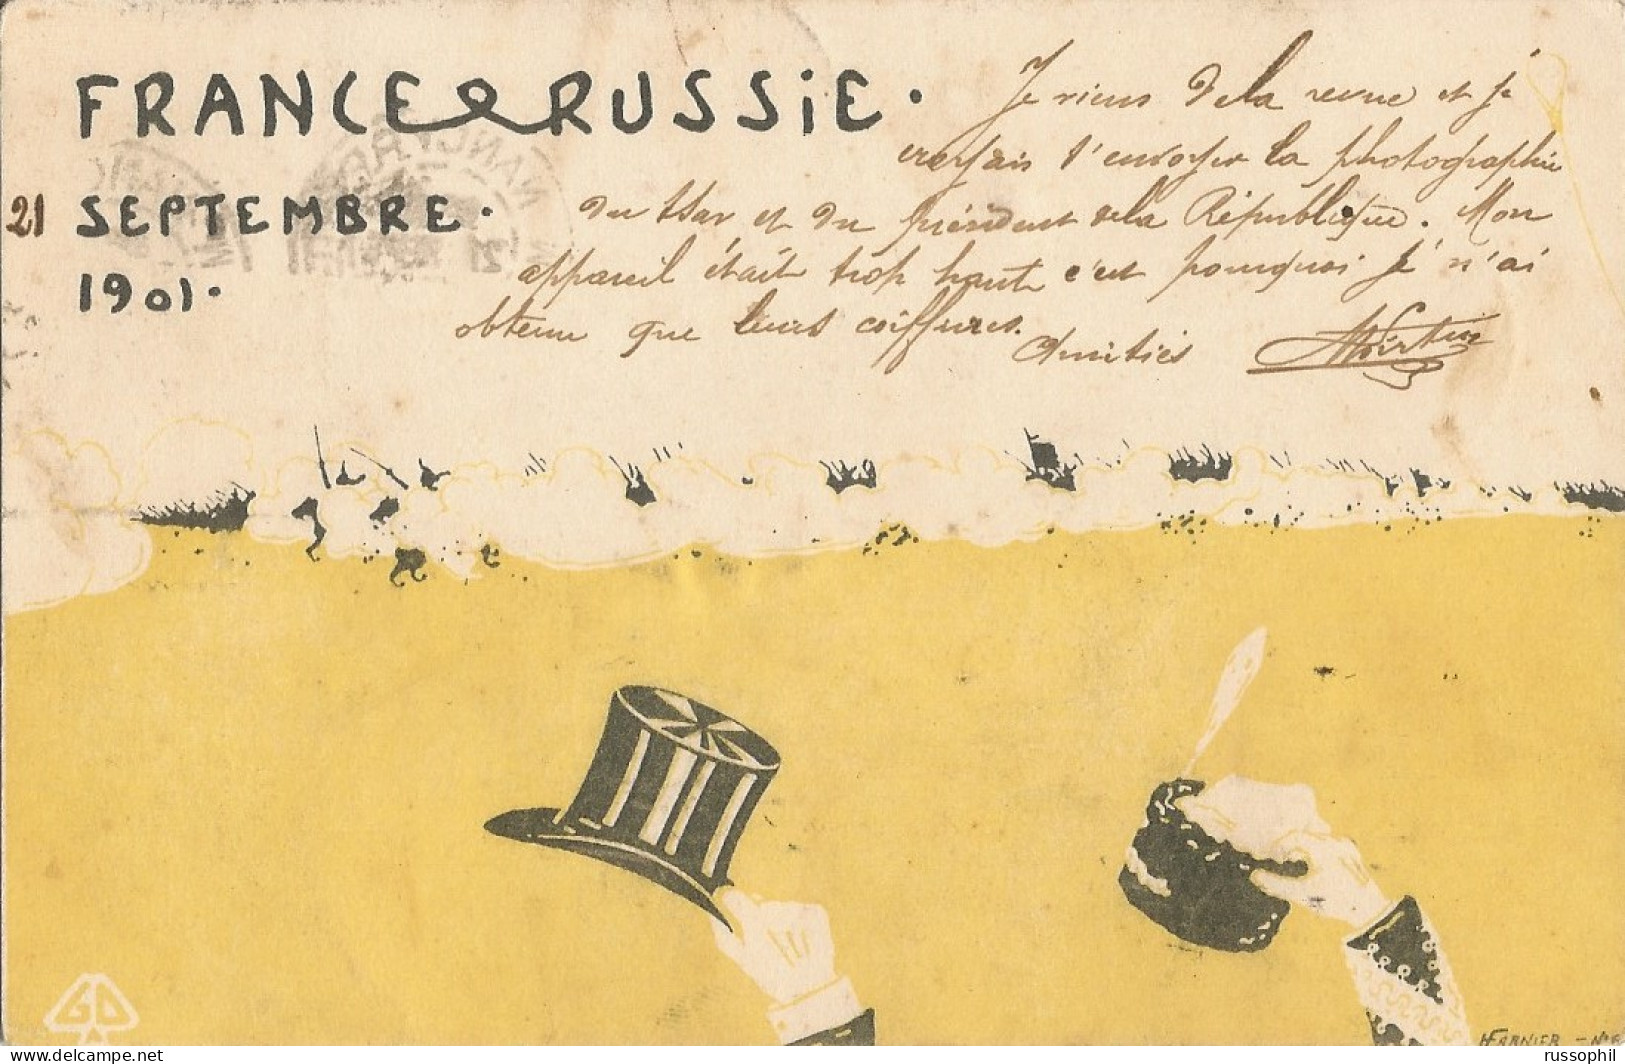 FRANCE & RUSSIE.
21 SEPTEMBRE.
1901.
Je viens de la revue et je
croyais t'envoyer la photographie
du tsar et du président de la République. Mon
appareil était trop haut c'est pourquoi je n'ai
obtenu que leurs coiffures.
Amitiés
GD
H FARNIER - N°6
russophil